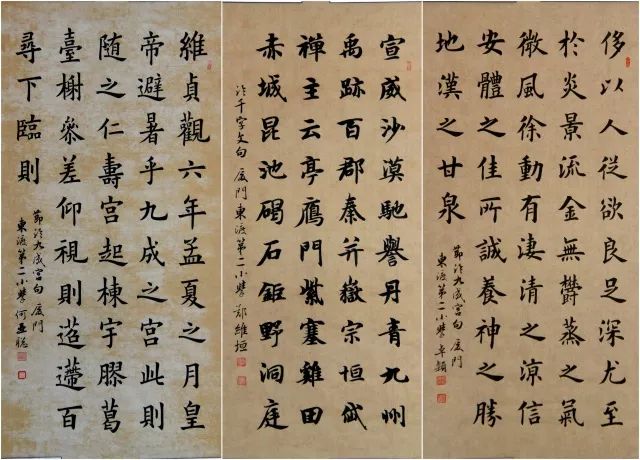 維貞觀六年孟夏之月皇
帝避暑乎九成之宫此則
随之仁壽宫起棟宇膠葛
臺榭參差仰視則迢遰百
尋下臨則
節临九成宫句 厦門
東渡第二小學 何亜聪
宣威沙漠馳譽丹青九州
禹跡百郡秦并嶽宗恒岱
禪主云亭鴈門紫塞雞田
赤城昆池碣石鉅野洞庭
临千字文句 厦門東渡第二小學 郑維垣
侈以人從欲良足深尤至
於炎景流金無欝蒸之氣
微風徐動有淒清之涼信
安體之佳所誠養神之勝
地漢之甘泉
節临九成宫句 厦門
東渡第二小學 卓穎